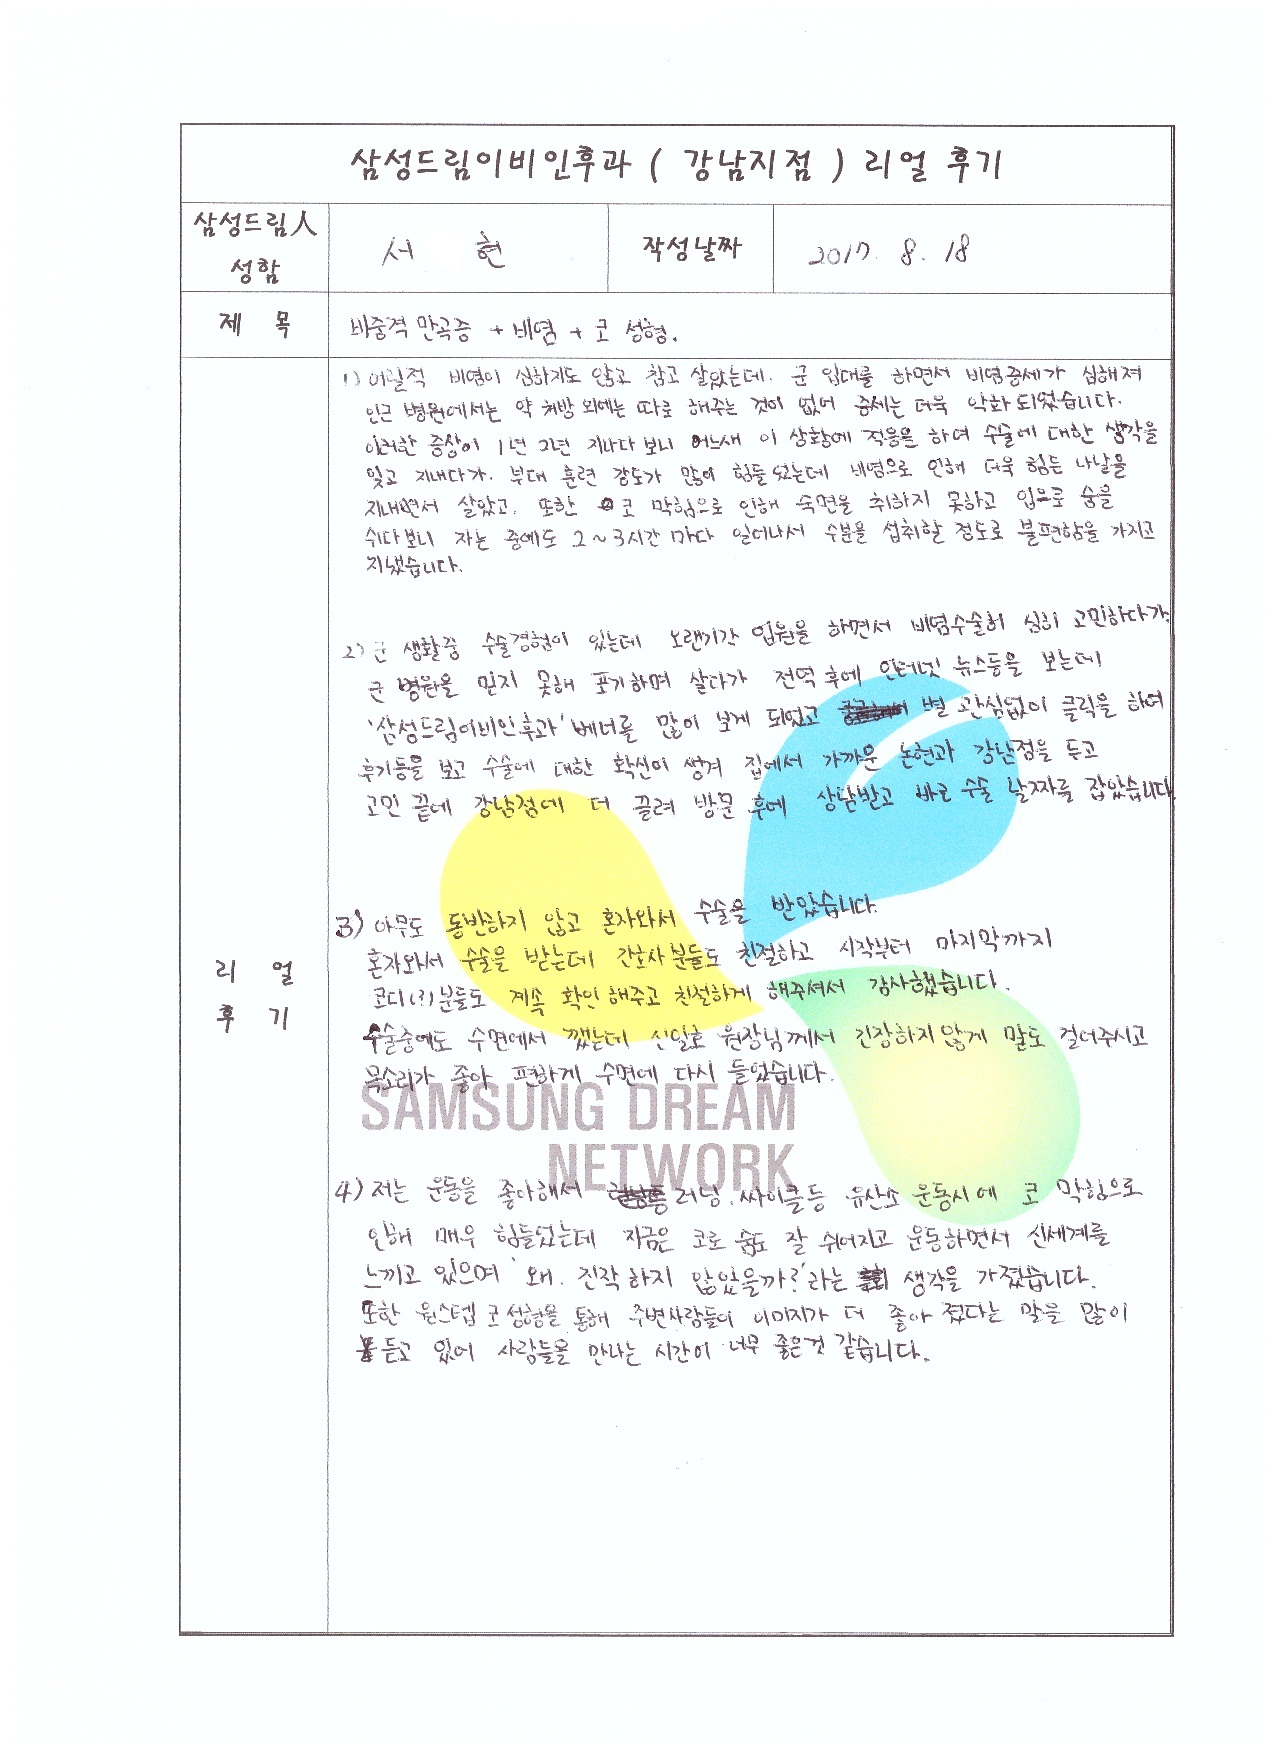 삼성드림이비인후과 ( 강남지점 ) 리얼 후기
삼성드림人 성함
서 현
작성날짜
2017. 8. 18
제 목
비중격 만곡증 + 비염 + 코 성형.
리 얼 후 기
1) 어릴적 비염이 심하지도 않고 참고 살았는데. 군 입대를 하면서 비염증세가 심해져
인근 병원에서는 약 처방 외에는 따로 해주는 것이 없어 증세는 더욱 악화되었습니다.
이러한 증상이 1년 2년 지나다 보니 어느새 이 상황에 적응을 하며 수술에 대한 생각을
잊고 지내다가. 부대 훈련 강도가 많이 힘들었는데 비염으로 인해 더욱 힘든 나날을
지내면서 살았고. 또한 코 막힘으로 인해 숙면을 취하지 못하고 입으로 숨을
쉬다보니 자는 중에도 2~3시간 마다 일어나서 수분을 섭취할 정도로 불편함을 가지고
지냈습니다.
2) 군 생활중 수술경험이 있는데 오랜기간 입원을 하면서 심히 고민하다가.
군 병원을 믿지 못해 포기하며 살다가 전역 후에 인터넷 뉴스등을 보는데
'삼성드림이비인후과' 베너를 많이 보게 되었고 별 관심없이 클릭을 하여
후기등을 보고 수술에 대한 확신이 생겨 집에서 가까운 논현과 강남점을 두고
고민 끝에 강남점에 더 끌려 방문 후에 상담받고 바로 수술 날짜를 잡았습니다
3) 아무도 동반하지 않고 혼자와서 수술을 받았습니다.
혼자와서 수술을 받는데 간호사분들도 친절하고 시작부터 마지막까지
코디(?)분들도 계속 확인해주고 친절하게 해주셔서 감사했습니다.
수술중에도 수면에서 깼는데 신일호 원장님께서 긴장하지않게 말도 걸어주시고
목소리가 좋아 편하게 수면에 다시 들었습니다.
SAMSUNG DREAM
NETWORK
4) 저는 운동을 좋아해서 러닝. 싸이클등 유산소 운동시에 코 막힘으로
인해 매우 힘들었는데 지금은 코로 숨도 잘 쉬어지고 운동하면서 신세계를
느끼고 있으며 '왜. 진작 하지 않았을까?'라는 생각을 가졌습니다.
또한 원스텝 코성형을 통해 주변사람들이 이미지가 더 좋아 졌다는 말을 많이
듣고 있어 사람들을 만나는 시간이 너무 좋은것 같습니다.